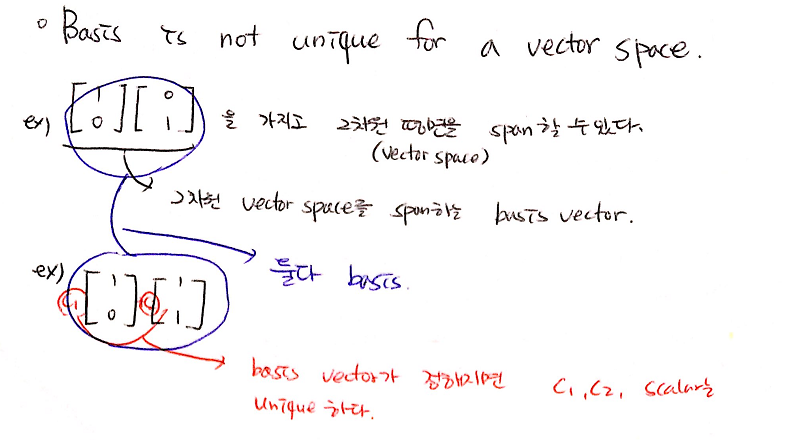 ° Basis is not unique for a vector space.
ex) [1 0] [0 1] 을 가지고 2차원 평면을 span할 수 있다.
(vector space)
2차원 vector space를 span하는 basis vector.
둘다 basis.
ex) C1 [1 0] C2 [1 1]
basis vector가 정해지면 C1, C2, scalar는
unique 하다.